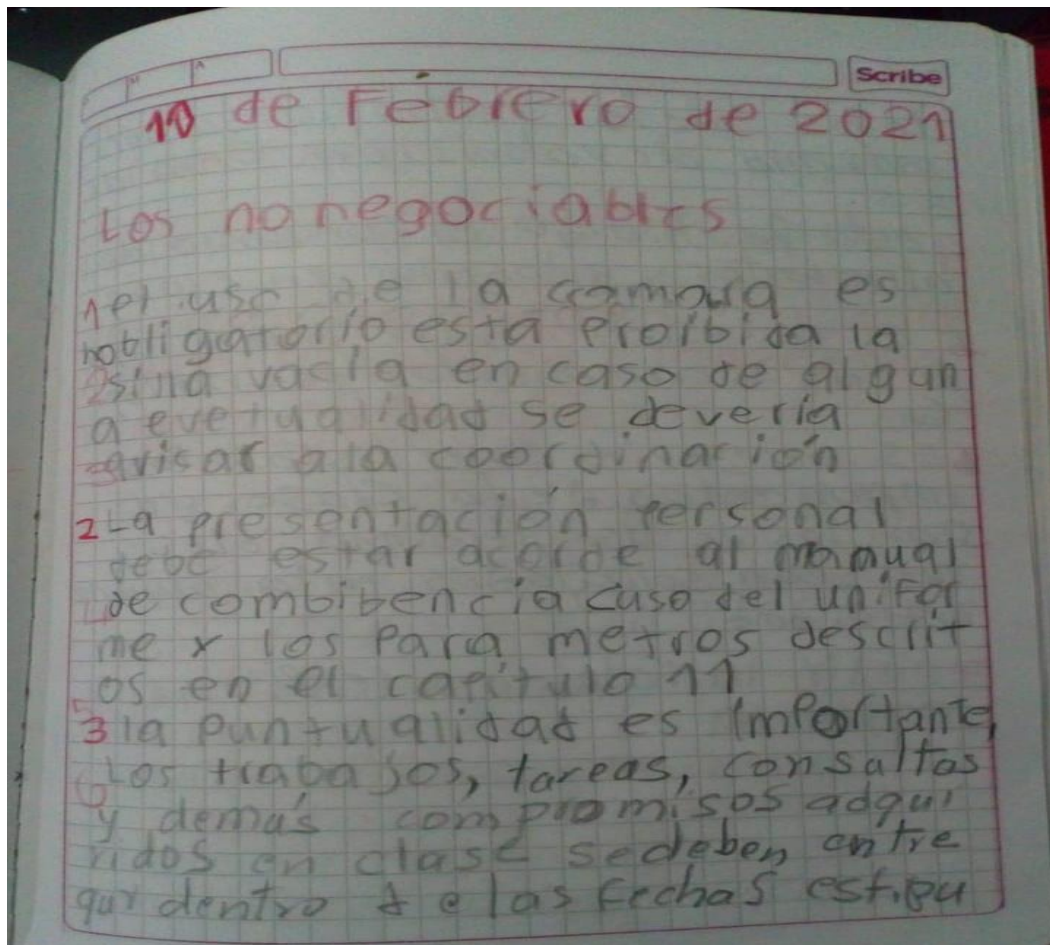 Scribe
10 de Febrero de 2021
Los no negociables
1 el uso de la camara es
obligatorio esta proibida la
silla vacia en caso de algun
a evetualidad se deveria
avisar a la coordinación
2 La presentación personal
debe estar acorde al manual
de combibencia cuso del unifor
me y los para metros descrit
os en el capitulo 11
3 la puntualidad es importante,
Los trabajos, tareas, consultas
y demás compromisos adqui
ridos en clase se deben entre
gar dentro de las fechas estipu